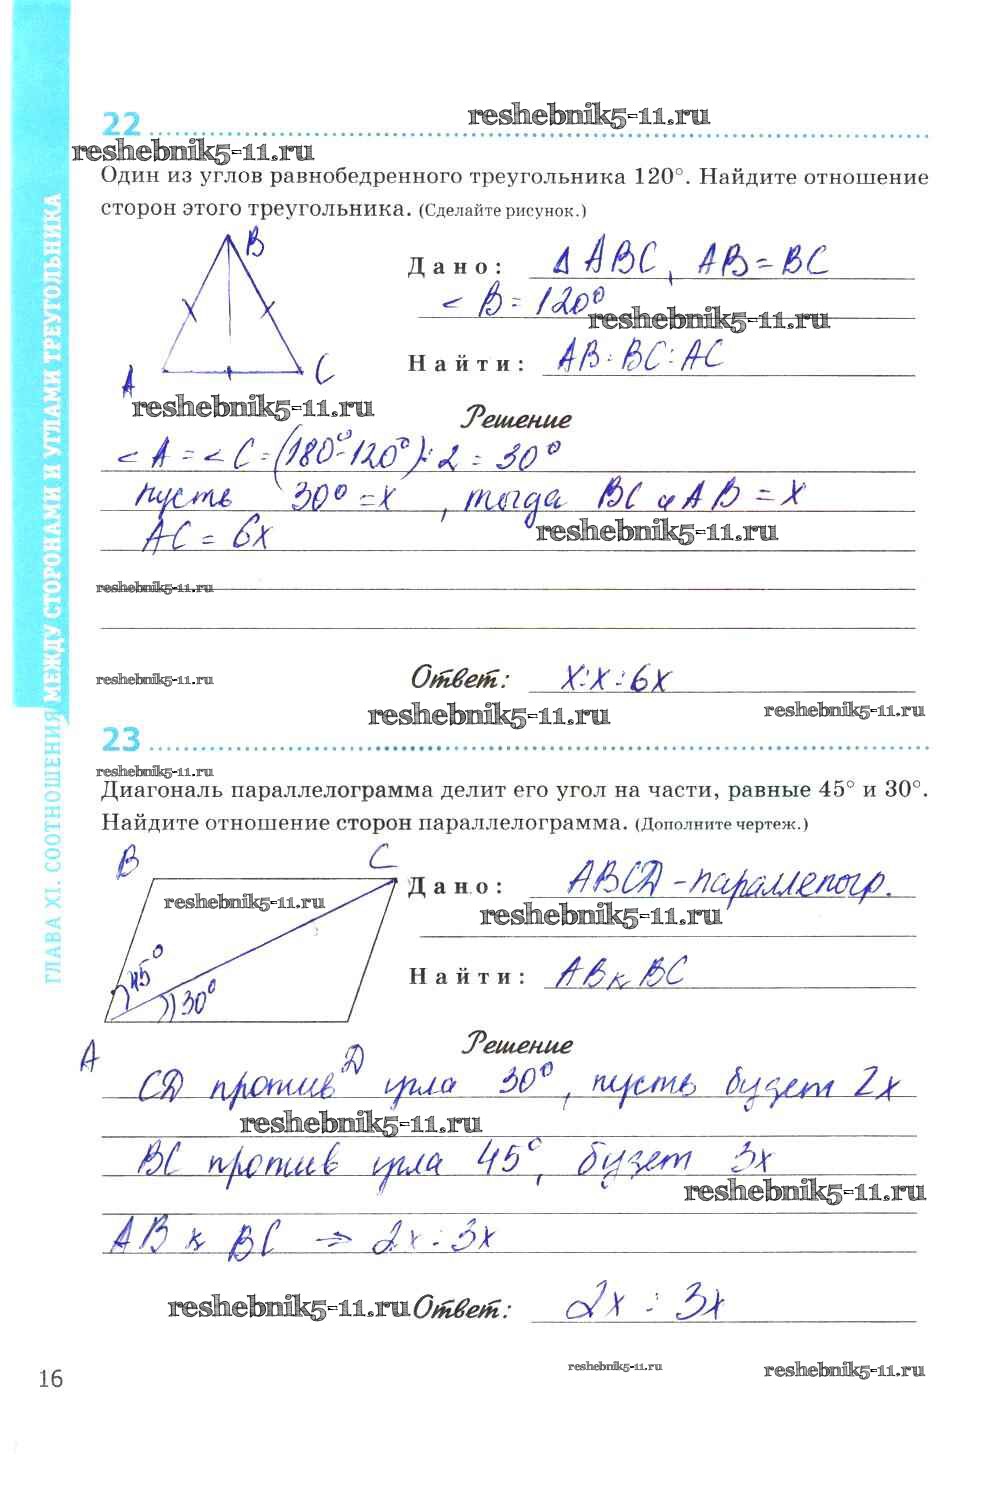 reshebnik5-11.ru
22
reshebnik5-11.ru
Один из углов равнобедренного треугольника 120°. Найдите отношение
сторон этого треугольника. (Сделайте рисунок.)
B
Дано: Δ ABC, AB = BC
< B = 120°
reshebnik5-11.ru
Найти: AB : BC : AC
A C
reshebnik5-11.ru
Решение
< A = < C = (180°-120°) : 2 = 30°
пусть 30° = x, тогда BC и AB = x
AC = 6x
reshebnik5-11.ru
reshebnik5-11.ru
reshebnik5-11.ru
Ответ: x : x : 6x
reshebnik5-11.ru
reshebnik5-11.ru
23
reshebnik5-11.ru
Диагональ параллелограмма делит его угол на части, равные 45° и 30°.
Найдите отношение сторон параллелограмма. (Дополните чертеж.)
B C
Дано: ABCD - параллелогр.
reshebnik5-11.ru
reshebnik5-11.ru
45°
30°
Найти: AB к BC
A D
Решение
CD против угла 30°, пусть будет 2x
reshebnik5-11.ru
BC против угла 45°, будет 3x
reshebnik5-11.ru
AB к BC ⇒ 2x : 3x
reshebnik5-11.ru
Ответ: 2x : 3x
16
reshebnik5-11.ru
reshebnik5-11.ru
ГЛАВА XI. СООТНОШЕНИЯ МЕЖДУ СТОРОНАМИ И УГЛАМИ ТРЕУГОЛЬНИКА